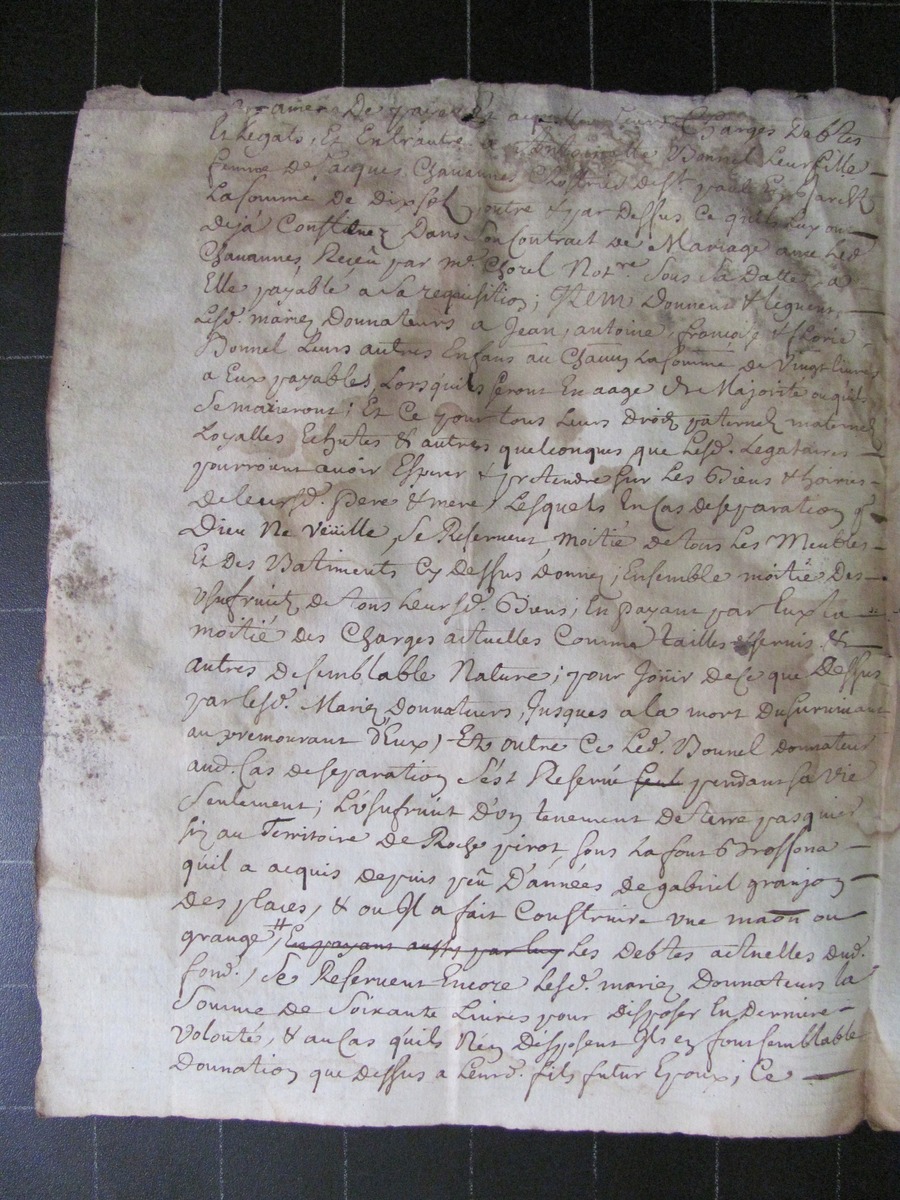 De payer et acquitter leurs Charges Debtes
Et Legats, Et Entrautre a Anthoinette Bonnel Leur fille
femme de Jacques Chauannes de St. paul En Jarest
La somme de dix sols outre & par Dessus Ce quils Luy ont
deja Constitué Dans son Contract de Mariage auec Led.
Chauannes Reçeu par me. Chorel Notre. Sous sa Datte, a
Elle payable a Sa requisition; Item Donnent & leguent,
Lesd. mariez Donnateurs a Jean, antoine, françois & florie
Bonnel Leurs autres Enfans au Chacun La somme de Vingt Liures
a Eux payables Lorsquils seront En aage de Majorité ou quils
Se marieront; Et Ce pour tous Leurs Droits paternels maternels
Loyalles Echutes & autres quelconques que Lesd. Legataires
pourroint auoir Esperer & pretendre sur Les Biens & hoiries
de leursd. Pere & mere, Lesquels En Cas de separation q.
Dieu Ne Veüille, Se Reseruent moitié de tous Les Meubles
Et Des Batiments Cy Dessus donnez; Ensemble moitié Des
Vsufruits de tous leursd. Biens; En payant par Eux la
moitié des Charges actuelles Comme tailles seruis &
autres de semblable Nature; pour Joüir de Ce que Dessus
par lesd. Mariez Donnateurs, Jusques a la mort Du suruiuant
au premourant d'Eux, Et outre Ce Led. Bonnel donnateur
aud. Cas de separation s'est Reserué seul pendant sa Vie
Seulement; L'vsufruit d'un tenement de terre pasquier
sis au Territoire de Roche pirot sous La font Brossona
qu'il a acquis depuis peu D'années de gabriel granjon
Des places, & ou Il a fait Construire vne maon ou
grange #, En payant aussy par luy Les Debtes actuelles dud.
fond., Se Reseruent Encore Lesd. mariez Donnateurs la
Somme de Soixante Liures pour disposer En Derniere
Volonté, & au Cas quils N'en Disposent Ils en font semblable
Donnation que dessus a Leurd. fils futur Epoux; Ce